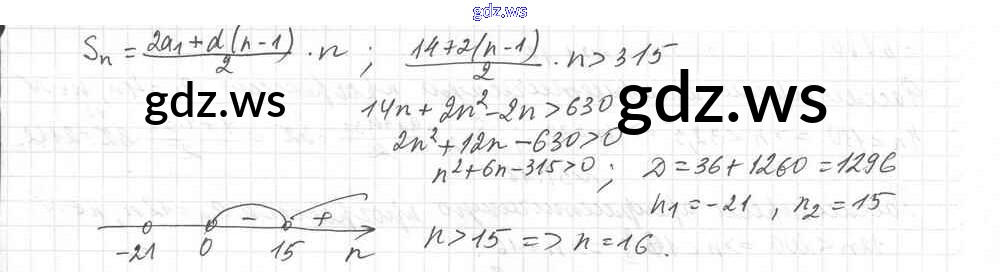 gdz.ws
Sₙ = (2a₁ + d(n-1))/2 · n ; (14+2(n-1))/2 · n > 315
gdz.ws gdz.ws
14n + 2n² - 2n > 630
2n² + 12n - 630 > 0
n² + 6n - 315 > 0 ; D = 36 + 1260 = 1296
n₁ = -21 , n₂ = 15
- +
-21 0 15 n
n > 15 => n = 16.